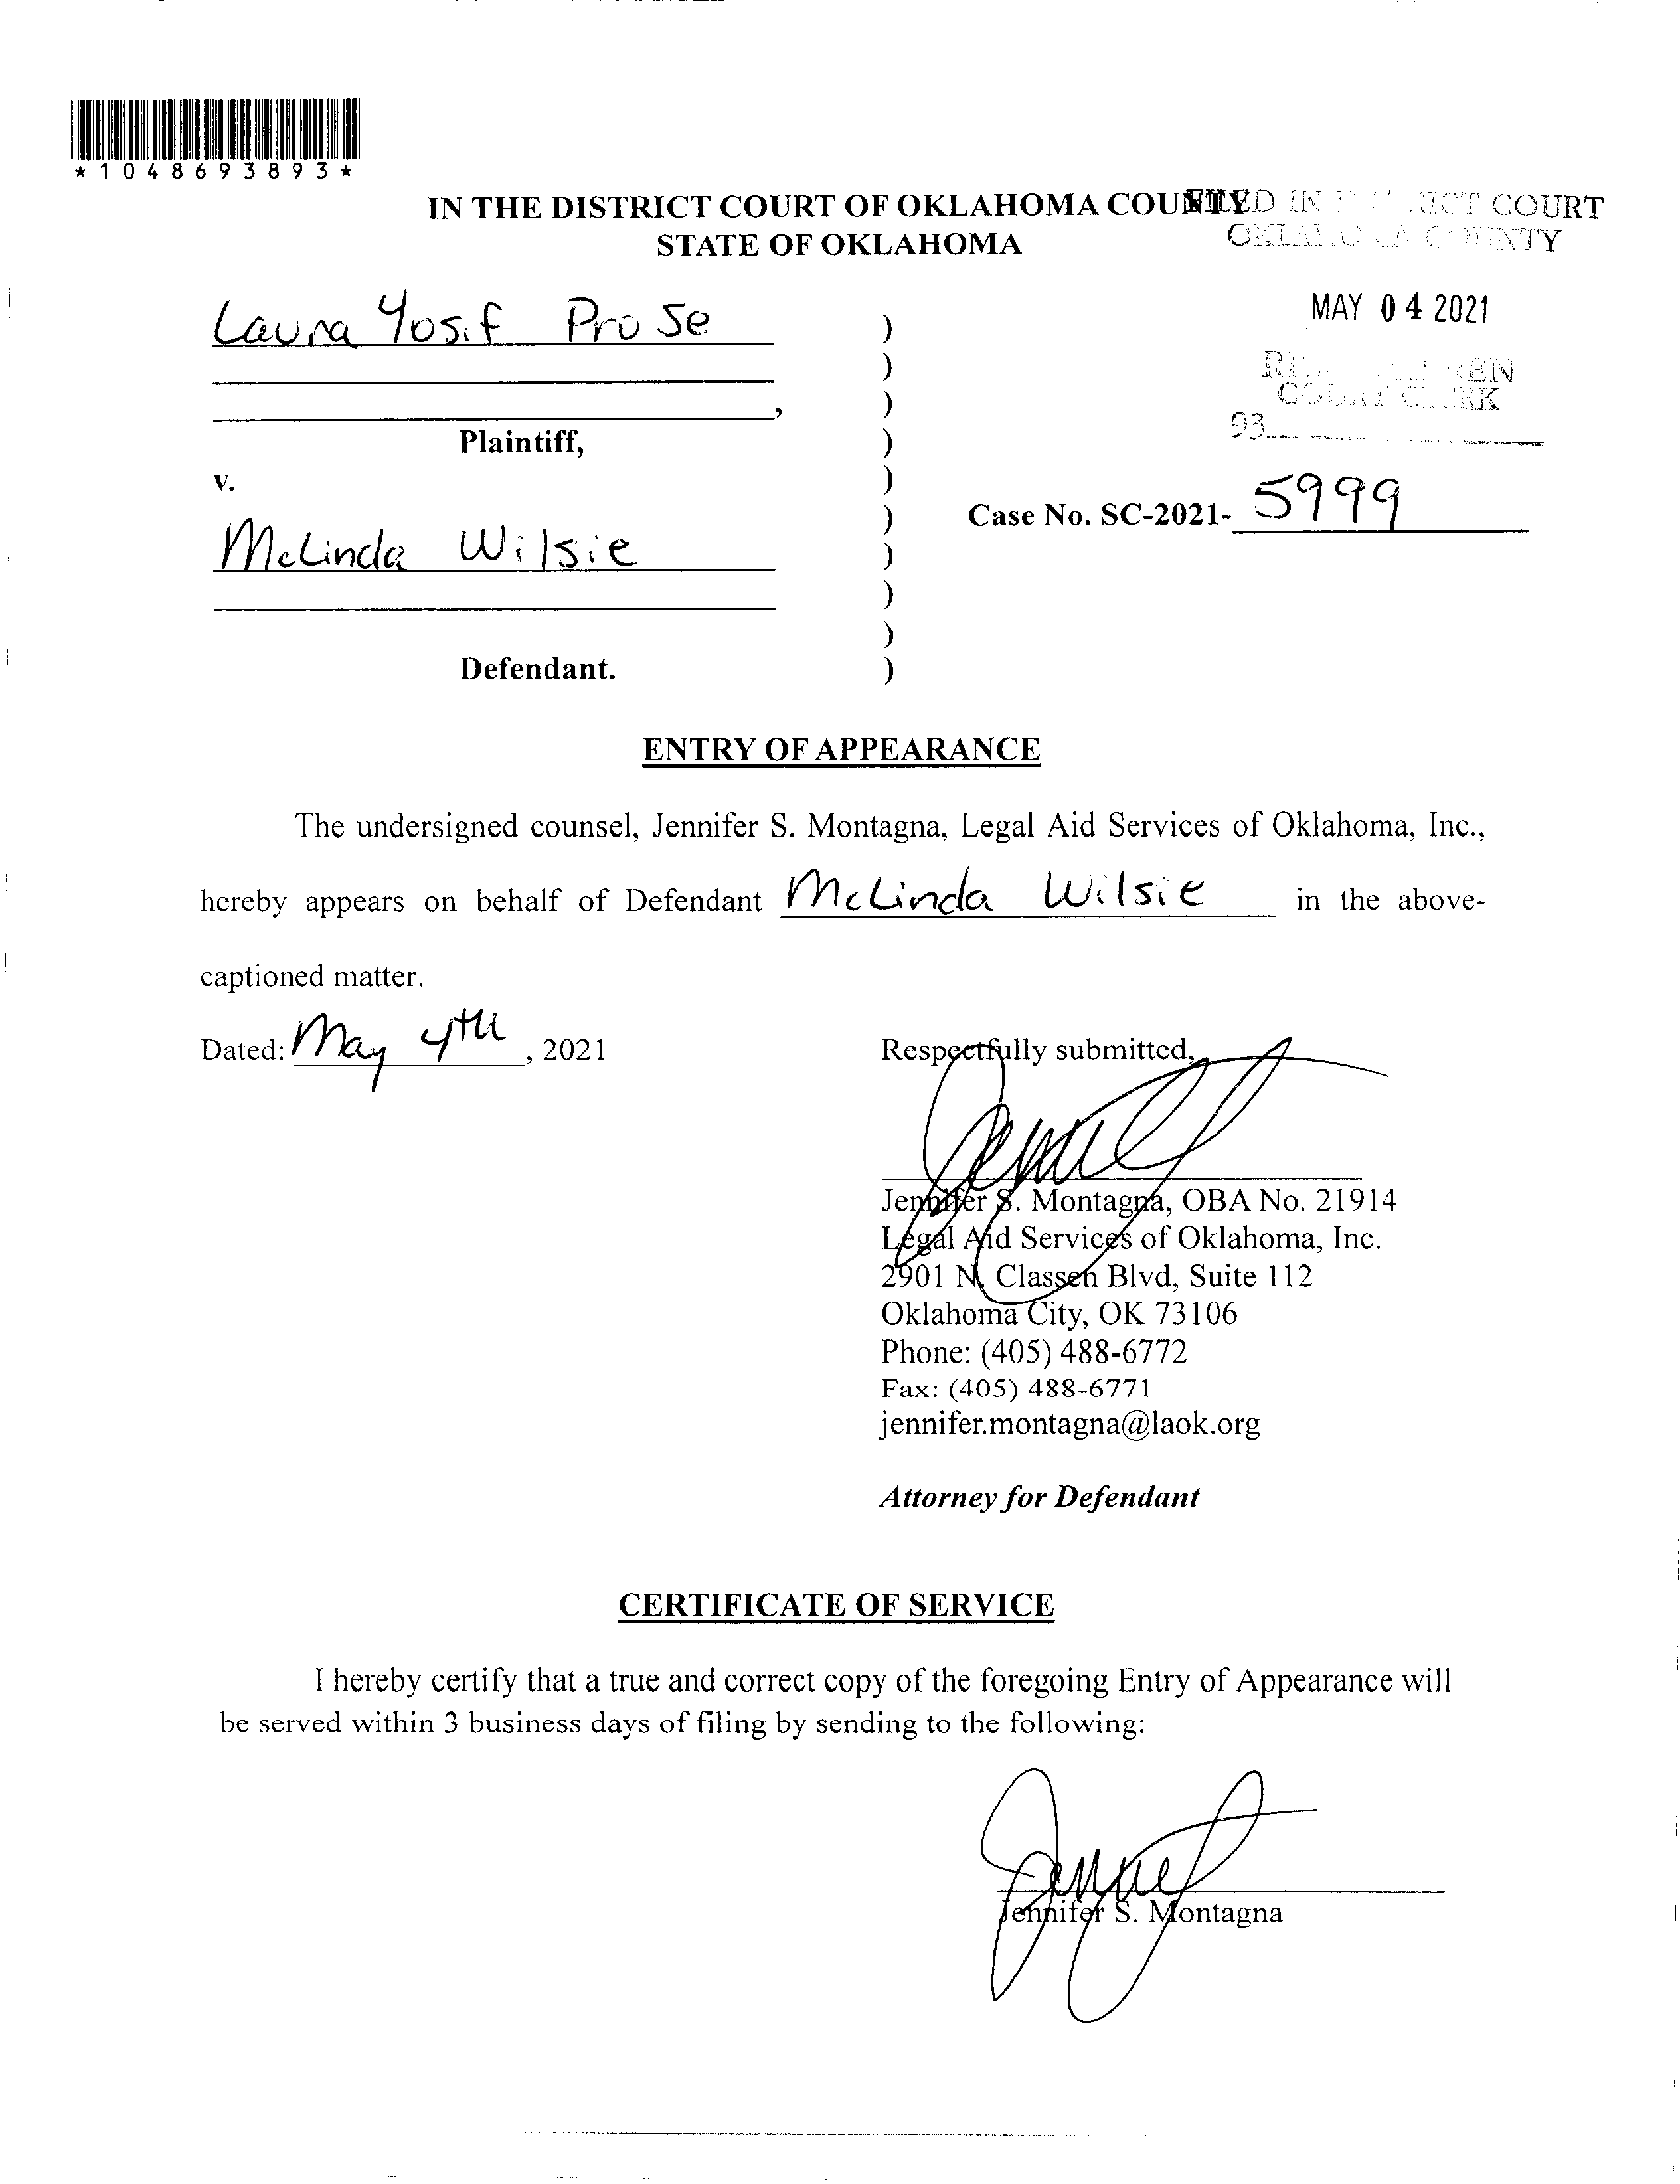 *1048693893*
IN THE DISTRICT COURT OF OKLAHOMA COUNTY
STATE OF OKLAHOMA
FILED IN COURT
COUNTY
MAY 04 2021
COURT CLERK
93
Laura Yosif Pro Se )
)
, )
Plaintiff, )
v. )
Case No. SC-2021- 5999
)
Melinda Wilsie )
)
)
Defendant. )
ENTRY OF APPEARANCE
The undersigned counsel, Jennifer S. Montagna, Legal Aid Services of Oklahoma, Inc.,
hereby appears on behalf of Defendant Melinda Wilsie in the above-
captioned matter.
Dated: May 4th, 2021
Respectfully submitted,
Jennifer S. Montagna, OBA No. 21914
Legal Aid Services of Oklahoma, Inc.
2901 N. Classen Blvd, Suite 112
Oklahoma City, OK 73106
Phone: (405) 488-6772
Fax: (405) 488-6771
jennifer.montagna@laok.org
Attorney for Defendant
CERTIFICATE OF SERVICE
I hereby certify that a true and correct copy of the foregoing Entry of Appearance will
be served within 3 business days of filing by sending to the following:
Jennifer S. Montagna